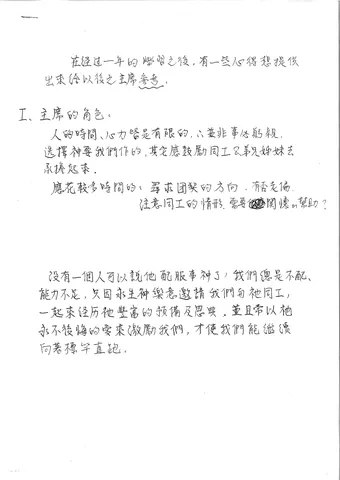 在经过一年的学习之后,有一些心得想提供
出来给以后之主席参考。
I、主席的角色:
人的时间、心力皆是有限的,亦並非事必躬親,
选擇神要我們作的,其它應鼓勵同工及弟兄姊妹去
承擔起來。
應花較多時間的:尋求团契的方向,有否走偏
注意同工的情形,需要関懷or幫助?
没有一個人可以說他配服事神了,我們總是不配、
能力不足,只因永生神樂意邀請我們与祂同工,
一起來经历祂豐富的預備及恩典,並且常以祂
永不後悔的爱來激勵我們,才使我們能繼續
向著標竿直跑。